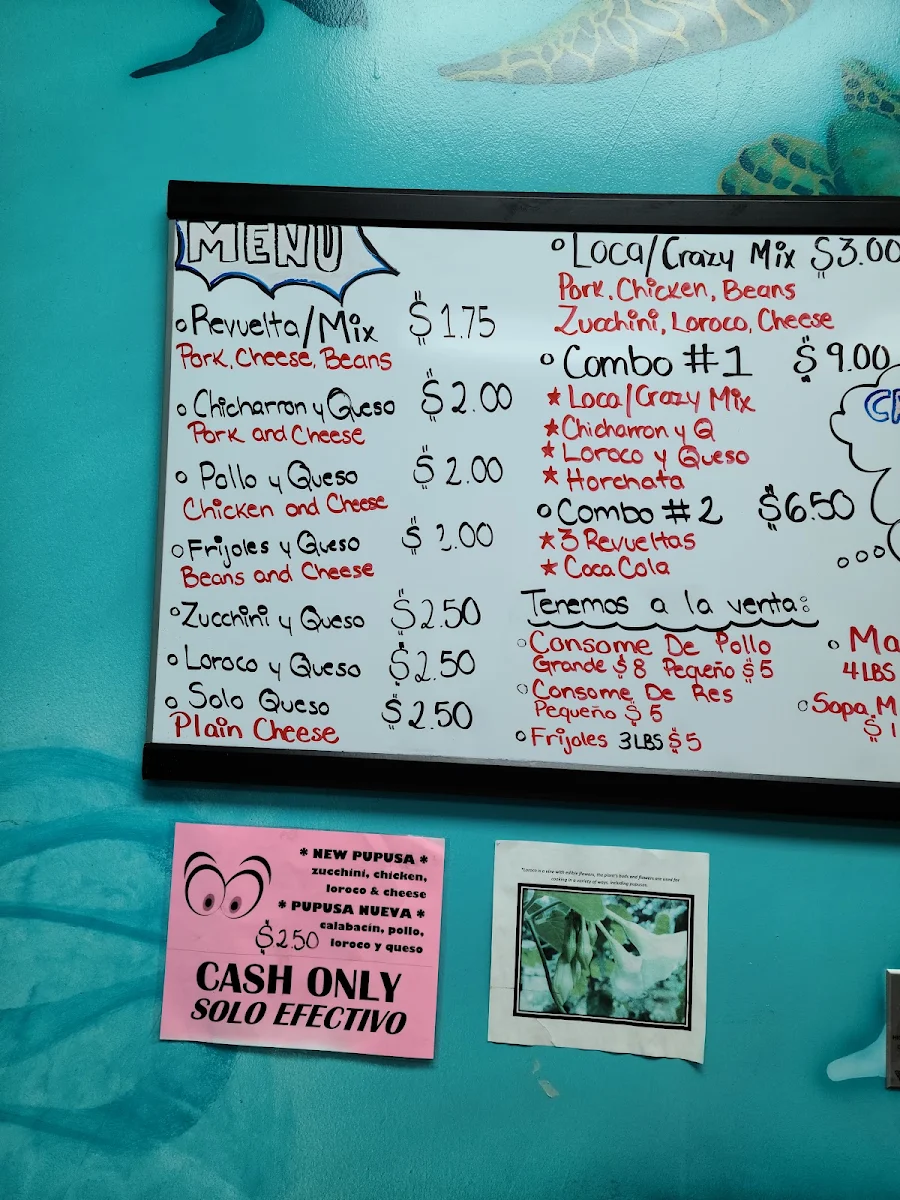 MENU
Revuelta/Mix $1.75
Pork, Cheese, Beans
Chicharron y Queso $2.00
Pork and Cheese
Pollo y Queso $2.00
Chicken and Cheese
Frijoles y Queso $2.00
Beans and Cheese
Zucchini y Queso $2.50
Loroco y Queso $2.50
Solo Queso $2.50
Plain Cheese
Loca/Crazy Mix $3.00
Pork, Chicken, Beans
Zucchini, Loroco, Cheese
Combo #1 $9.00
Loca/Crazy Mix
Chicharron y Q
Loroco y Queso
Horchata
Combo #2 $6.50
3 Revueltas
Coca Cola
Tenemos a la venta:
Consome De Pollo
Grande $8 Pequeño $5
Consome De Res
Pequeño $5
Frijoles 3LBS $5
Ma
4 LBS
Sopa M
$1
* NEW PUPUSA *
zucchini, chicken,
loroco & cheese
* PUPUSA NUEVA *
calabacín, pollo,
$2.50 loroco y queso
CASH ONLY
SOLO EFECTIVO
*Loroco is a vine with edible flowers, the plant's buds and flowers are used for
cooking in a variety of ways, including pupusas.